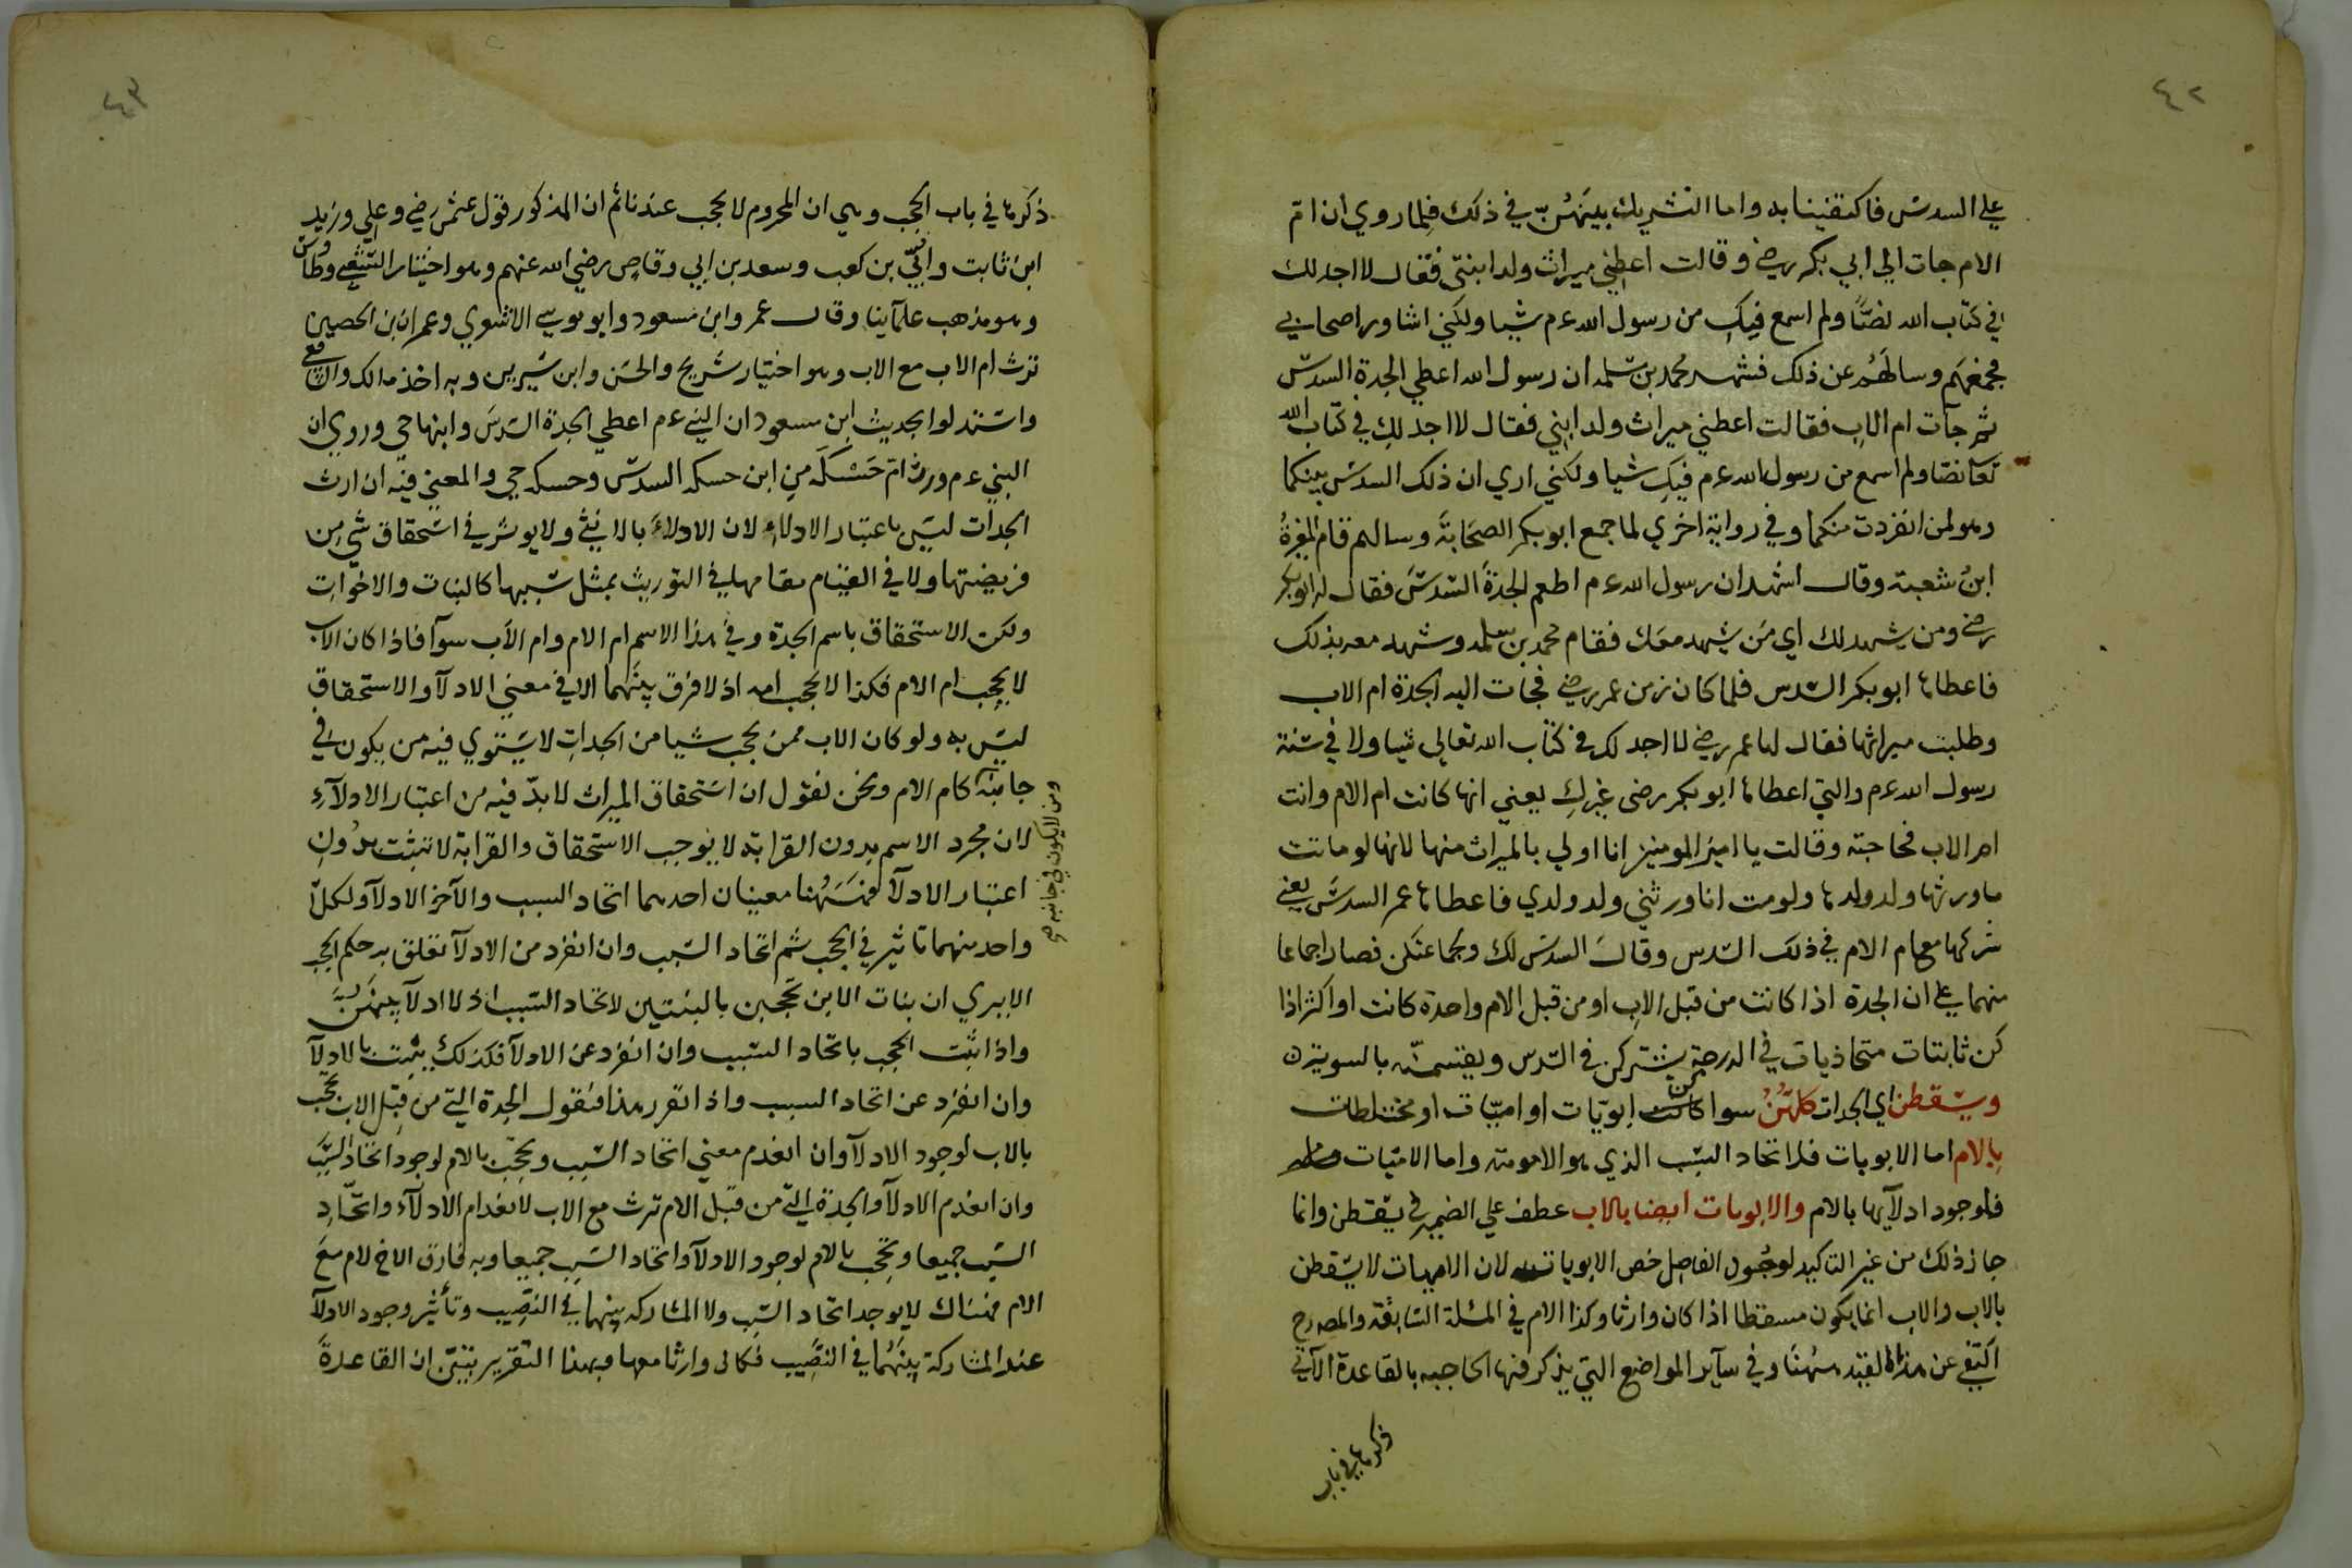 ٤٢
علي السدس فاكتفينا به واما التشريك بينهن في ذلك فلما روي ان ام
الام جات الي ابي بكر رضي وقالت اعطني ميراث ولد ابنتي فقال لا اجد لك
في كتاب الله نصا ولم اسمع فيك من رسول الله ءم شيا ولكني اشاور اصحابي
فجمعهم وسالهم عن ذلك فشهد محمد بن سلمه ان رسول الله اعطي الجدة السدس
ثم جآت ام الاب فقالت اعطني ميراث ولد ابني فقال لا اجد لك في كتاب الله
تعا نصا ولم اسمع من رسول الله ءم فيك شيا ولكني اري ان ذلك السدس بينكما
وهو لمن انفردت منكما وفي رواية اخري لما جمع ابو بكر الصحابة وسالهم قام المغيرة
ابن شعبة وقال اشهد ان رسول الله ءم اطعم الجدة السدس فقال له ابو بكر
رضي ومن يشهد لك اي من يشهد معك فقام محمد بن سلمه وشهد معه بذلك
فاعطاها ابو بكر السدس فلما كان زمن عمر رضي فجات اليه الجدة ام الاب
وطلبت ميراثها فقال لها عمر رضي لا اجد لك في كتاب الله تعالي شيا ولا في سنة
رسول الله ءم والتي اعطاها ابو بكر رضي غيرك يعني انها كانت ام الام وانت
ام الاب فحاجته وقالت يا امير المومنين انا اولي بالميراث منها لانها لو ماتت
ما ورثها ولد ولدها ولو مت انا ورثني ولد ولدي فاعطاها عمر السدس يعني
شركها مع ام الام في ذلك السدس وقال السدس لك وجماعتكن فصار اجماعا
منهما علي ان الجدة اذا كانت من قبل الاب او من قبل الام واحدة كانت او اكثر اذا
كن ثابتات متحاذيات في الدرجة يشتركن في السدس ويقتسمنه بالسوية
ويسقطن اي الجدات كلهن سوا كن ابويات او اميات او مختلطات
بالام اما الابويات فلاتحاد السبب الذي هو الامومة واما الاميات
فلوجود ادلآيها بالام والابويات ايضا بالاب عطف علي الضمير في يسقطن وانما
جاز ذلك من غير التاكيد لوجود الفاصل خص الابويات لان الاميات لا يسقطن
بالاب والاب انما يكون مسقطا اذا كان وارثا وكذا الام في المسئلة السابقة والمص رح
اكتفي عن هذا القيد ههنا وفي سآير المواضع التي يذكر فيها الحاجب بالقاعدة الآتي
ذكرها في باب
٤٣
ذكرها في باب الحجب وهي ان المحروم لا يحجب عندنا ثم ان المذكور قول عثمن رضي وعلي وزيد
ابن ثابت وابي بن كعب وسعد بن ابي وقاص رضي الله عنهم وهو اختيار الشعبي وطاس
وهو مذهب علمآينا وقال عمر وابن مسعود وابو موسي الاشعري وعمران بن الحصين
ترث ام الاب مع الاب وهو اختيار شريح والحسن وابن سيرين وبه اخذ مالك والشافعي
واستدلوا بحديث ابن مسعود ان النبي ءم اعطي الجدة السدس وابنها حي وروي ان
النبي ءم ورث ام حسكة من ابن حسكه السدس وحسكه حي والمعني فيه ان ارث
الجدات ليس باعتبار الادلاء لان الادلاء بالانثي ولا يوثر في استحقاق شي من
فريضتها ولا في القيام مقامها في التوريث بمثل سببها كالبنات والاخوات
ولكن الاستحقاق باسم الجدة وفي هذا الاسم ام الام وام الاب سوآ فاذا كان الاب
لا يحجب ام الام فكذا لا يحجب امه اذ لا فرق بينهما الا في معني الادلآ والاستحقاق
ليس به ولو كان الاب ممن يحجب شيا من الجدات لا يستوي فيه من يكون في
جانبه كام الام ونحن نقول ان استحقاق الميراث لا بد فيه من اعتبار الادلآء
ومن لا يكون في جانبه صح
لان مجرد الاسم بدون القرابة لا يوجب الاستحقاق والقرابة لا تثبت بدون
اعتبار الادلآ فههنا معنيان احدهما اتحاد السبب والآخر الادلآ ولكل
واحد منهما تاثير في الحجب ثم اتحاد السبب وان انفرد من الادلآ تعلق به حكم الحجب
الا يري ان بنات الابن تحجبن بالبنتين لاتحاد السبب اذ لا ادلآ بينهن
واذا ثبت الحجب باتحاد السبب وان انفرد عن الادلآ فكذلك يثبت بالادلآ
وان انفرد عن اتحاد السبب واذا تقرر هذا فنقول الجدة التي من قبل الاب تحجب
بالاب لوجود الادلآ وان انعدم معني اتحاد السبب وتحجب بالام لوجود اتحاد السبب
وان انعدم الادلآ والجدة التي من قبل الام ترث مع الاب لانعدام الادلآء واتحاد
السبب جميعا وتحجب بالام لوجود الادلآ واتحاد السبب جميعا وبه فارق الاخ لام مع
الام فهناك لا يوجد اتحاد السبب ولا المشاركه بينهما في النصيب وتأثير وجود الادلآ
عند المشاركة بينهما في النصيب فكان وارثا معها وبهذا التقرير تبين ان القاعدة